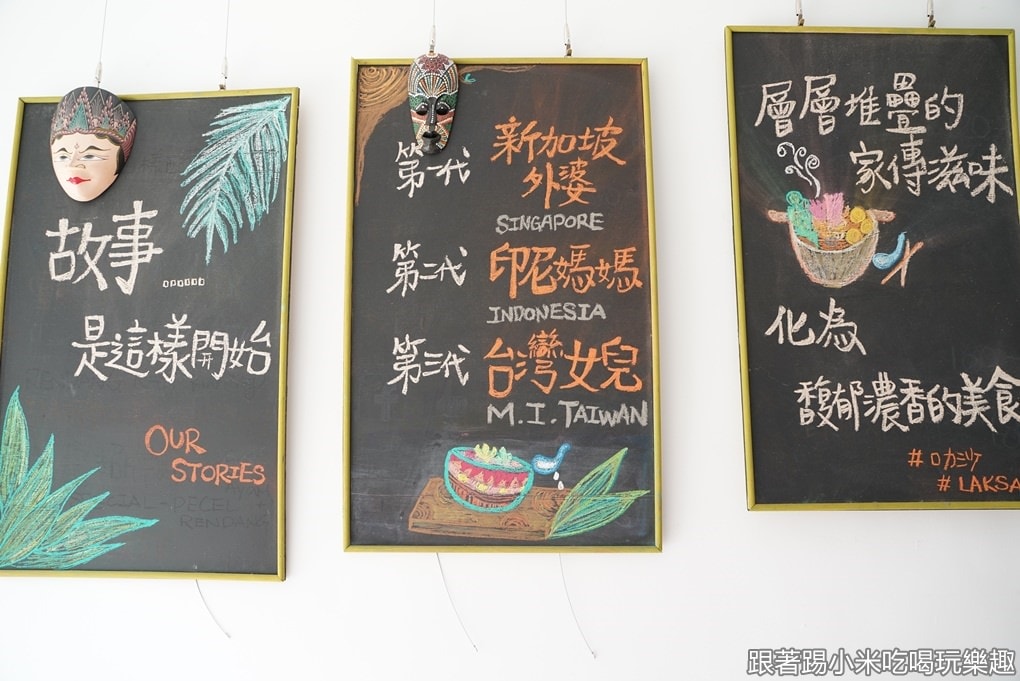 故事......
是這樣開始
OUR
STORIES
RENDANG
第一代
新加坡
外婆
SINGAPORE
第二代
印尼媽媽
INDONESIA
第三代
台灣女兒
M.I.TAIWAN
層層堆疊的
家傳滋味
化為
馥郁濃香的美食
#ㄌㄎㄕㄚ
#LAKSA
跟著踢小米吃喝玩樂趣